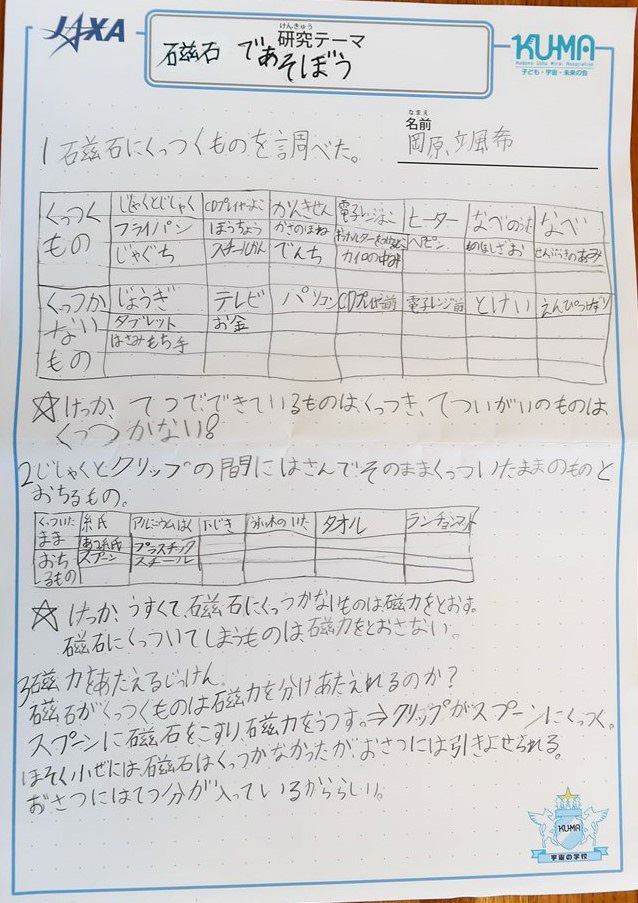 JAXA
けんきゅう
研究テーマ
石磁石 であそぼう
KUMA
子ども・宇宙・未来の会
なまえ
名前
岡原、颯希
1 石磁石にくっつくものを調べた。
くっつくもの じしゃくとじしゃく CDプレイヤーよこ かんきせん 電子レンジよこ ヒーター なべのふた なべ
フライパン ほうちょう かさのほね ヘアピン ものほしざお せんぷうきのあみ
じゃぐち スチールかん でんち カイロの中み
くっつかないもの じょうぎ テレビ パソコン CDプレイヤー前 電子レンジ前 とけい えんぴつけずり
タブレット お金
はさみもち手
☆けっか、てつでできているものは、くっつき、てついがいのものは
くっつかない。
2じしゃくとクリップの間にはさんで、そのままくっついたままのものと
おちるもの。
くっついたまま 紙 アルミニウムはく 下じき うすい木のいた タオル ランチョンマット
あつ紙 プラスチック
おちるもの スプーン スチール
☆けっか、うすくて、石磁石にくっつかないものは磁力をとおす。
石磁石にくっついてしまうものは、石磁力をとおさない。
3石磁力をあたえるじっけん。
石磁石がくっつくものは石磁力を分けあたえれるのか？
スプーンに石磁石をこすり、石磁力をうつす。⇒クリップがスプーンにくっつく。
ほそく 小ぜには、石磁石はくっつかなかったが、おさつには引きよせられる。
おさつにはてつ分が入っているかららしい。
KUMA
宇宙の学校